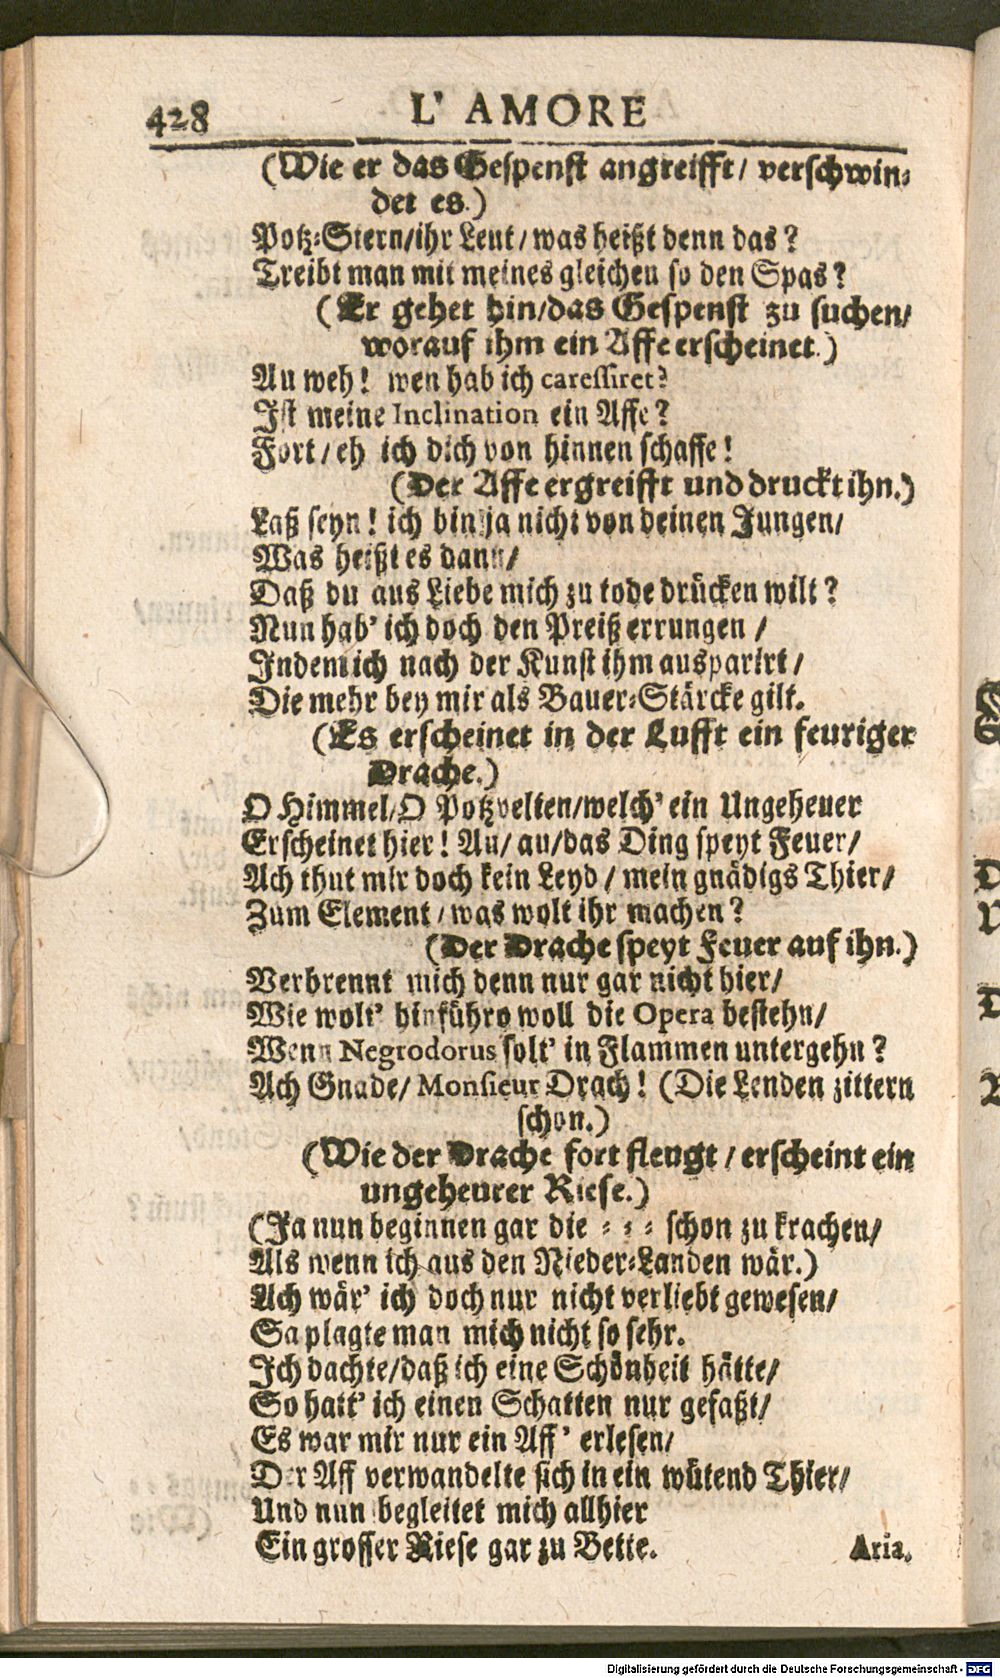 428 L' AMORE
(Wie er das Gespenst angreifft/ verschwin-
det es.)
Potz-Stern/ihr Leut/ was heißt denn das?
Treibt man mit meines gleichen so den Spas?
(Er gehet hin/das Gespenst zu suchen/
worauf ihm ein Affe erscheinet.)
Au weh! wen hab ich caressiret?
Ist meine Inclination ein Affe?
Fort/ eh ich dich von hinnen schaffe!
(Der Affe ergreifft und druckt ihn.)
Laß seyn! ich bin ja nicht von deinen Jungen/
Was heißt es dann/
Daß du aus Liebe mich zu tode drücken wilt?
Nun hab' ich doch den Preiß errungen /
Indem ich nach der Kunst ihm ausparirt /
Die mehr bey mir als Bauer-Stärcke gilt.
(Es erscheinet in der Lufft ein feuriger
Drache.)
O Himmel/O Potzvelten/welch' ein Ungeheuer
Erscheinet hier! Au/ au/das Ding speyt Feuer/
Ach thut mir doch kein Leyd / mein gnädigs Thier/
Zum Element / was wolt ihr machen?
(Der Drache speyt Feuer auf ihn.)
Verbrennt mich denn nur gar nicht hier/
Wie wolt' hinführo woll die Opera bestehn/
Wenn Negrodorus solt' in Flammen untergehn?
Ach Gnade/ Monsieur Drach! (Die Lenden zittern
schon.)
(Wie der Drache fort fleugt / erscheint ein
ungeheurer Riese.)
(Ja nun beginnen gar die - - - schon zu krachen/
Als wenn ich aus den Nieder-Landen wär.)
Ach wär' ich doch nur nicht verliebt gewesen/
So plagte man mich nicht so sehr.
Ich dachte/daß ich eine Schönheit hätte/
So hatt' ich einen Schatten nur gefaßt/
Es war mir nur ein Aff' erlesen/
Der Aff verwandelte sich in ein wütend Thier/
Und nun begleitet mich allhier
Ein grosser Riese gar zu Bette.
Aria.
Digitalisierung gefördert durch die Deutsche Forschungsgemeinschaft - DFG